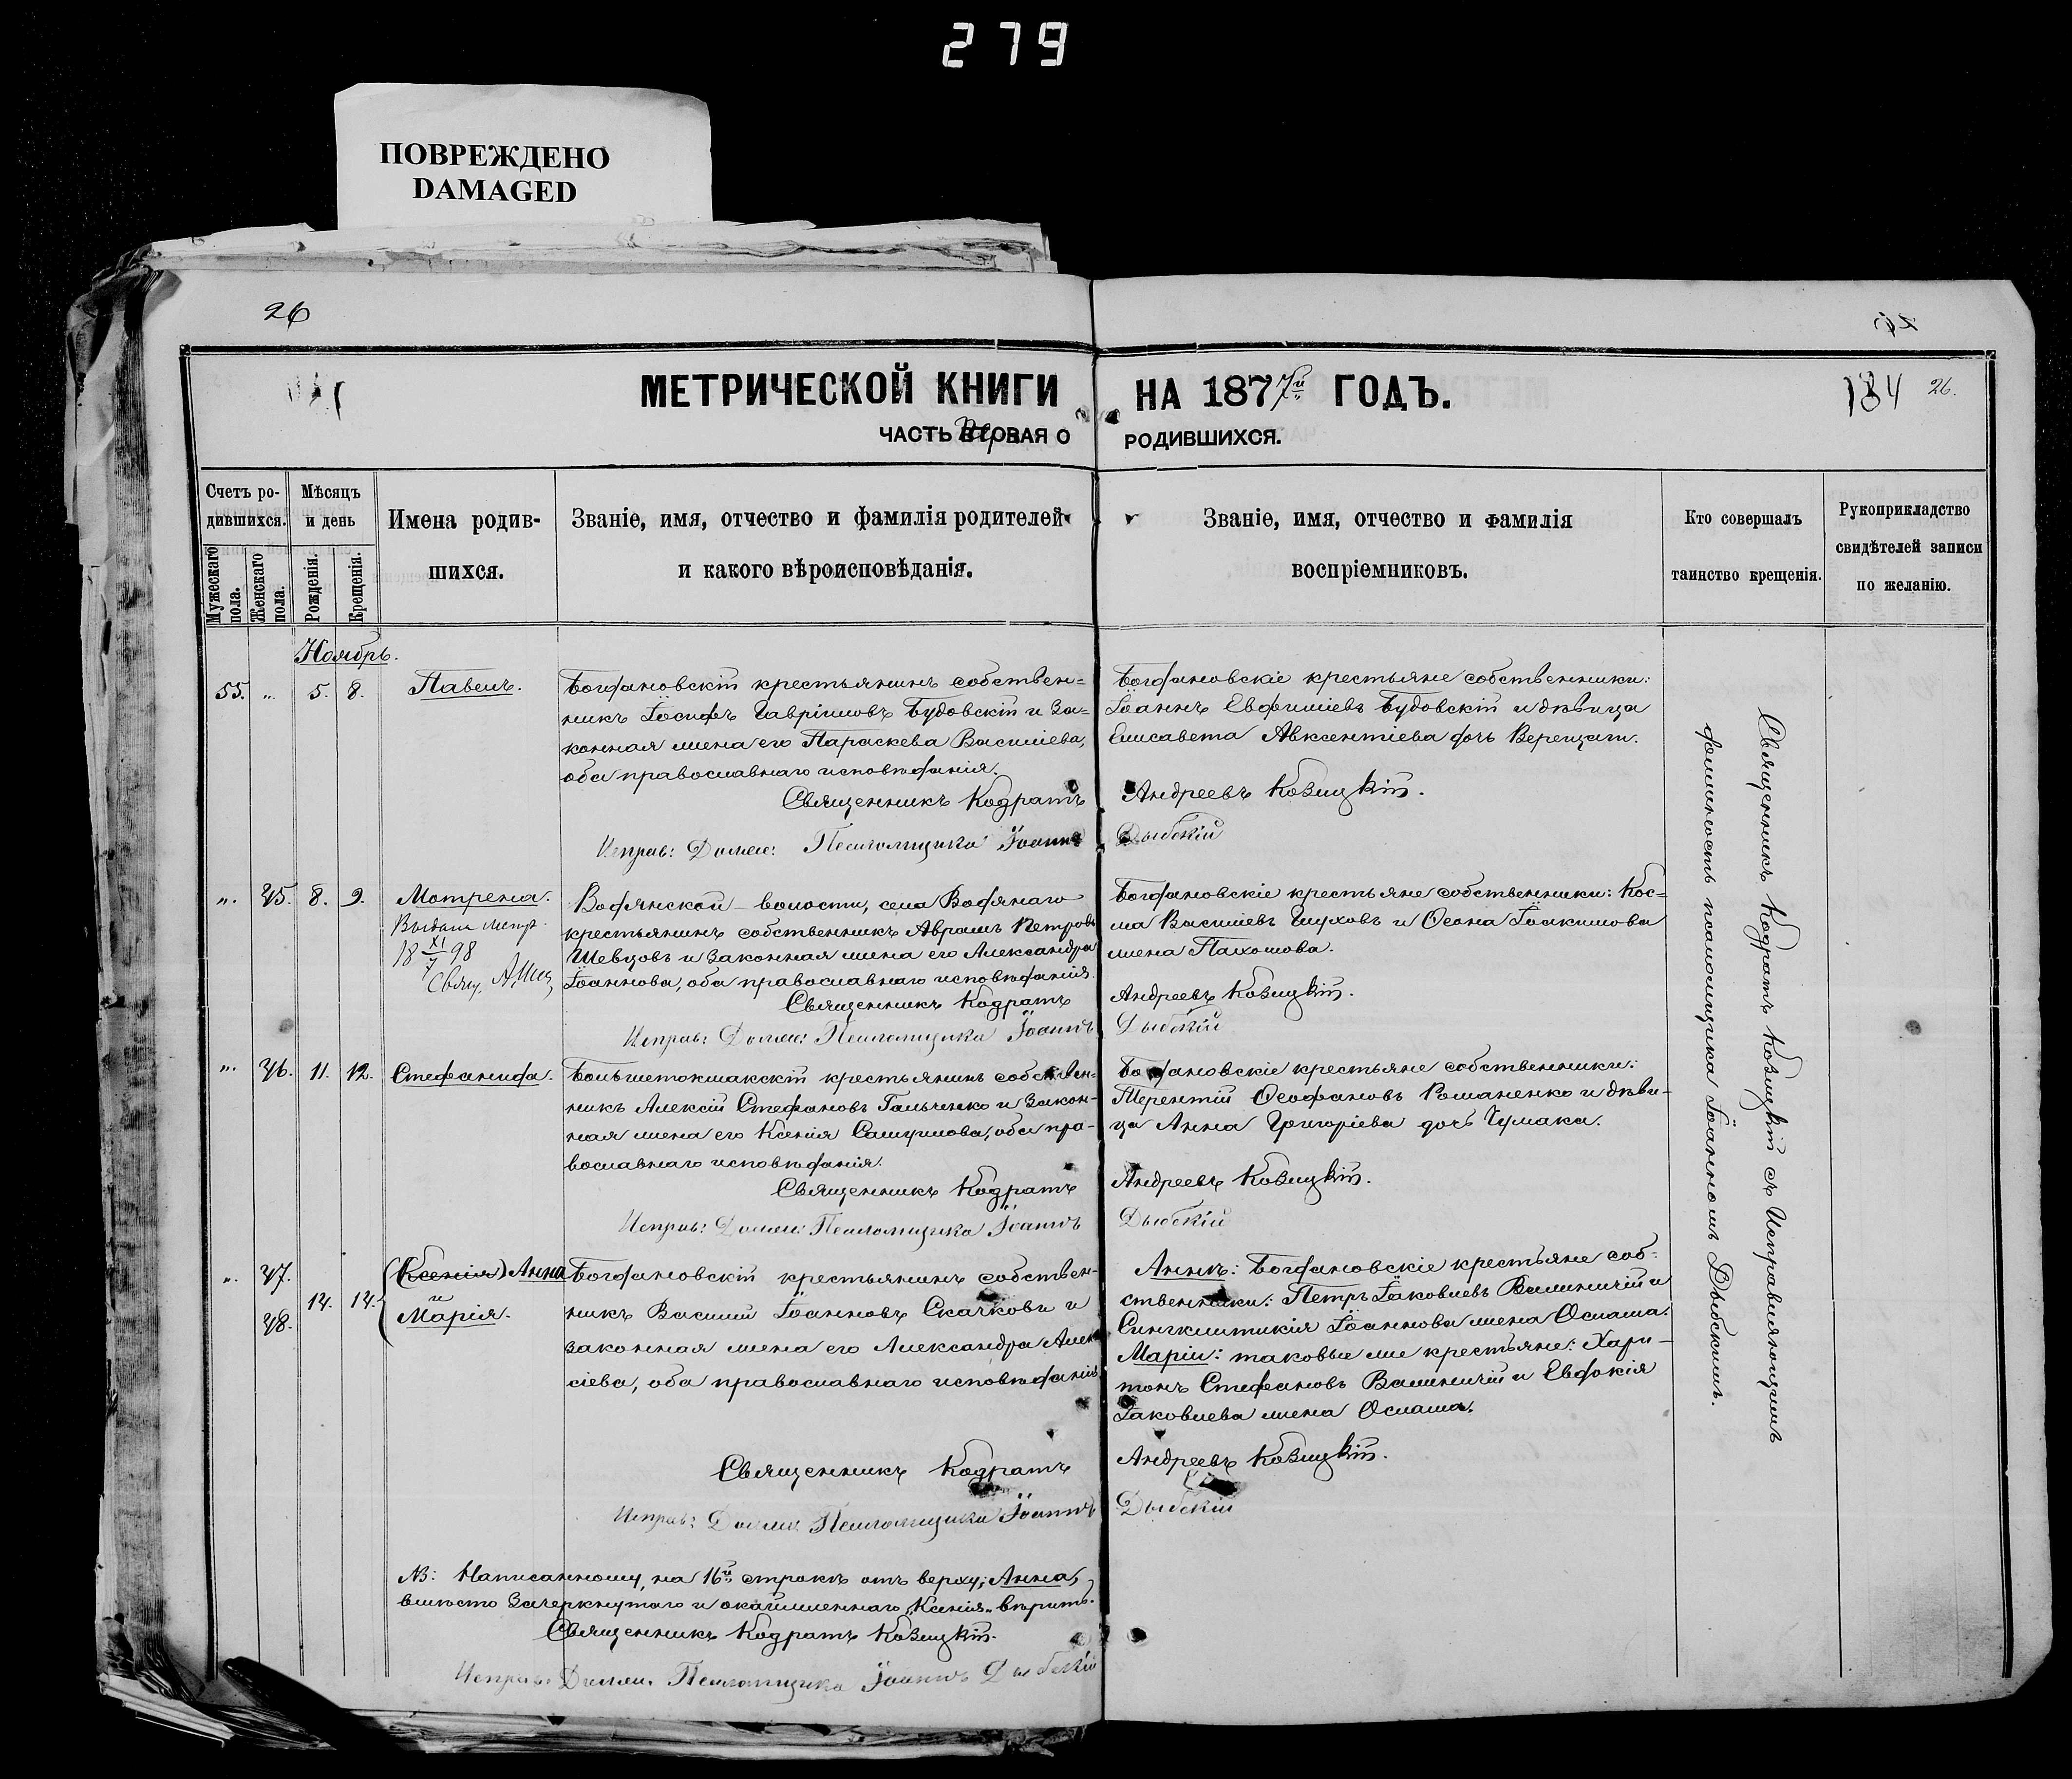 279
ПОВРЕЖДЕНО
DAMAGED
26
МЕТРИЧЕСКОЙ КНИГИ НА 1877й ГОДЪ.
184 26.
ЧАСТЬ ВТОРАЯ О РОДИВШИХСЯ.
Счетъ ро-
дившихся.
Мужескаго пола.
Женскаго пола.
Мѣсяцъ
и день
Рожденія.
Крещенія.
Имена родив-
шихся.
Званіе, имя, отчество и фамилія родителей
и какого вѣроисповѣданія.
Званіе, имя, отчество и фамилія
воспріемниковъ.
Кто совершалъ
таинство крещенія.
Рукоприкладство
свидѣтелей записи
по желанію.
Ноябрь.
55. „ 5. 8. Павелъ.
Богдановскій крестьянинъ собствен=
никъ Іосифъ Гавріиловъ Будовскій и за=
конная жена его Параскева Василіева,
оба православнаго исповѣданія.
Священникъ Кодратъ Андреевъ Козицкій.
Исправ: Должн: Псаломщика Іоаннъ Дыбскій
Богдановскіе крестьяне собственники:
Іоаннъ Евфиміевъ Будовскій и дѣвица
Елисавета Авксентіева дочь Верещаги.
„ 45. 8. 9. Мотрона.
Выдана метр.
18 XI/7 98
Свящ. А.
Водянской волости, села Водянаго
крестьянинъ собственникъ Аврамъ Петровъ
Шевцовъ и законная жена его Александра
Іоаннова, оба православнаго исповѣданія.
Священникъ Кодратъ Андреевъ Козицкій.
Исправ: Должн: Псаломщика Іоаннъ Дыбскій
Богдановскіе крестьяне собственники: Кос=
ма Василіевъ Глуховъ и Ѳеона Іоакимова
жена Пахомова.
„ 46. 11. 12. Стефанида.
Большетокмакскій крестьянинъ собствен-
никъ Алексій Стефановъ Гальченко и закон-
ная жена его Ксенія Самуилова, оба пра-
вославнаго исповѣданія.
Священникъ Кодратъ Андреевъ Козицкій.
Исправ: Должн: Псаломщика Іоаннъ Дыбскій
Богдановскіе крестьяне собственники:
Терентій Ѳеофановъ Романенко и дѣви-
ца Анна Григоріева дочь Чумака.
„ 47. 48. 14. 14. (Ксенія) Анна
и
Марія.
Богдановскій крестьянинъ собствен-
никъ Василій Іоанновъ Скачковъ и
законная жена его Александра Алек
сіева, оба православнаго исповѣданія
Священникъ Кодратъ Андреевъ Козицкій.
Исправ: Должн: Псаломщика Іоаннъ Дыбскій
Аннѣ: Богдановскіе крестьяне соб-
ственники: Петръ Іаковлевъ и
Синклитикія Іоаннова жена Осмаша.
Маріи: таковые же крестьяне: Хари-
тонъ Стефановъ и Евдокія
Іаковлева жена Осмаша.
Священникъ Кодратъ Козицкій съ Исправляющимъ
должность псаломщика Іоанномъ Дыбскимъ.
NB: Написанному, на 16й строкѣ отъ верху, Анна,
вмѣсто зачеркнутаго и окаймленнаго „Ксенія„ вѣрить.
Священникъ Кодратъ Козицкій.
Исправ: Должн. Псаломщика Іоаннъ Дыбскій